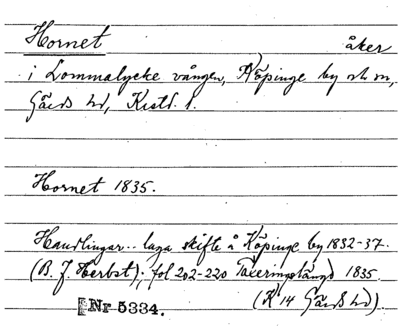 Hornet åker
i Lommalycke vången, Köpinge by o sn,
Gärds hd, Kristl. l.
Hornet 1835.
Handlingar.. laga skifte å Köpinge by 1832-37.
(B. J. Herbst); fol 202-220 Taxeringslängd 1835.
(K 14 Gärds hd).
Nr 5334.